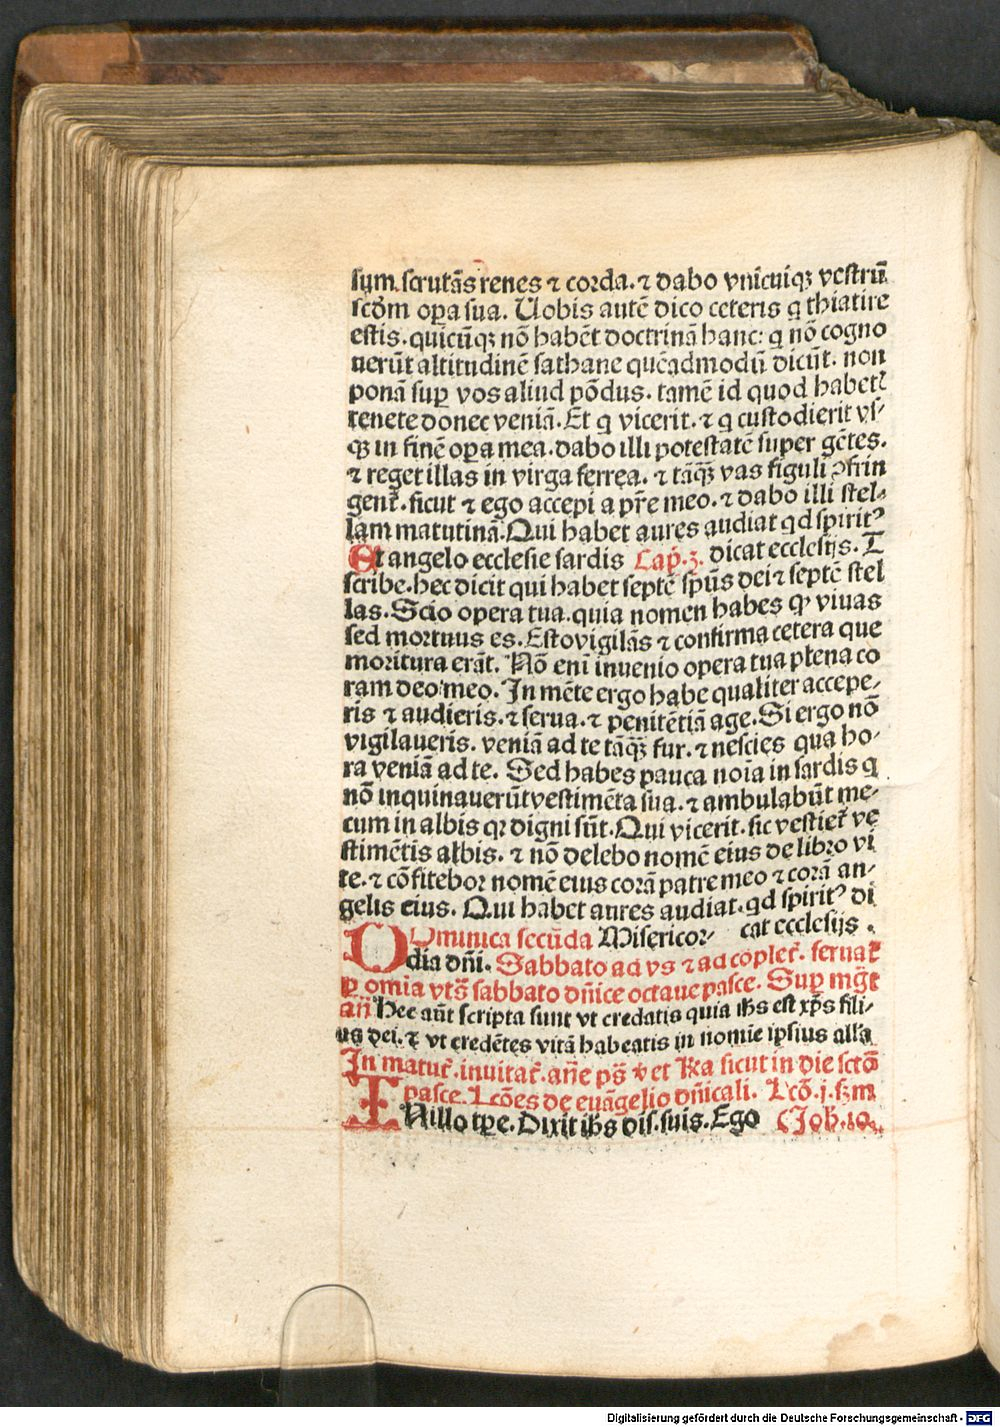 sum scrutãs renes ⁊ corda. ⁊ dabo vnicuiqꝫ vestrũ
scḋm oꝑa sua. Uobis autẽ dico ceteris q thiatire
estis. quicũqꝫ nõ habẽt doctrinã hanc: q nõ cogno
uerũt altitudinẽ sathane quẽadmodũ dicũt. non
ponã suꝑ vos aliud põdus. tamẽ id quod habetꝭ
tenete donec veniã. Et q vicerit. ⁊ q custodierit vs⸗
qꝫ in finẽ oꝑa mea. dabo illi potestatẽ super gẽtes.
⁊ reget illas in virga ferrea. ⁊ tãqꝫ vas figuli ꝯfrin
gent᷑. sicut ⁊ ego accepi a pr̃e meo. ⁊ dabo illi stel⸗
lam matutinã. Qui habet aures audiat qd spiritꝰ
Et angelo ecclesie sardis Cap̃. 3. dicat ecclesijs. T
scribe. hec dicit qui habet septẽ sp̃us dei ⁊ septẽ stel
las. Scio opera tua. quia nomen habes ꝙ viuas
sed mortuus es. Esto vigilãs ⁊ confirma cetera que
moritura erãt. Nõ enĩ inuenio opera tua plena co
ram deo meo. In mẽte ergo habe qualiter accepe⸗
ris ⁊ audieris. ⁊ serua. ⁊ penitẽtiã age. Si ergo nõ
vigilaueris. veniã ad te tãqꝫ fur. ⁊ nescies qua ho⸗
ra veniã ad te. Sed habes pauca noĩa in sardis q
nõ inquinauerũt vestimẽta sua. ⁊ ambulabũt me⸗
cum in albis qꝛ digni sũt. Qui vicerit. sic vestiet᷑ ve
stimẽtis albis. ⁊ nõ delebo nomẽ eius de libro vi
te. ⁊ cõfitebor nomẽ eius corã patre meo ⁊ corã an⸗
gelis eius. Qui habet aures audiat. qd spiritꝰ di
cat ecclesijs.
DOminica secũda Misericor⸗
dia dñi. Sabbato ad vs ⁊ ad cõplet᷑. seruat᷑
ꝑ omĩa vts̃ sabbato dñice octaue pasce. Suꝑ mg̃t
añ Hec aũt scripta sunt vt credatis quia ihs est xp̃s fili⸗
us dei. ⁊ vt credẽtes vitã habeatis in nomĩe ipsius alla
In matut᷑. inuitat᷑. añe pš v̇ et Ra sicut in die sctõ
pasce. Lcões de euãgelio dñicali. Lcõ. j. ẞm
INillo tꝑe. Dixit ihs dis. suis. Ego (Joh. 10.
Digitalisierung gefördert durch die Deutsche Forschungsgemeinschaft - DFG